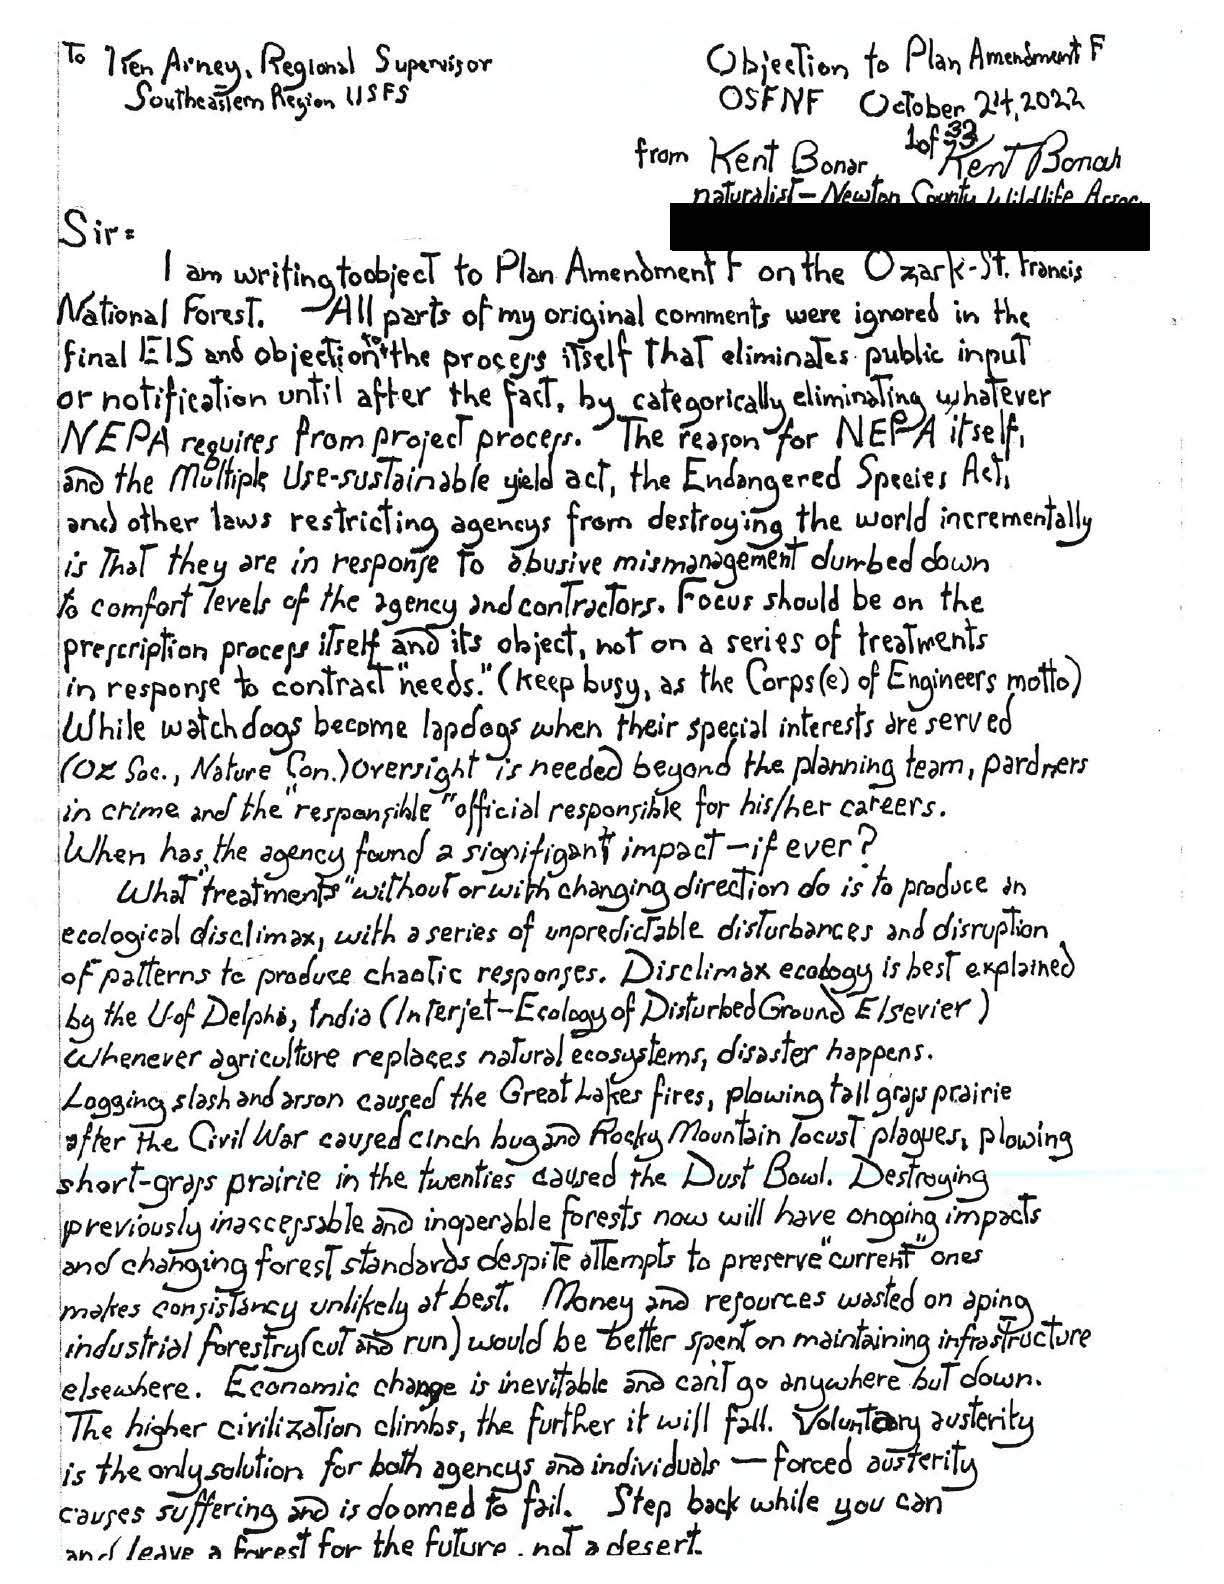 To Ken Arney, Regional Supervisor
Southeastern Region USFS
Objection to Plan Amendment F
OSFNF October 24, 2022
1 of 33
from Kent Bonar Kent Bonar
naturalist – Newton County Wildlife Assoc.
Sir=
I am writing to object to Plan Amendment F on the Ozark-St. Francis
National Forest. All parts of my original comments were ignored in the
final EIS and objection to the process itself that eliminates public input
or notification until after the fact, by categorically eliminating whatever
NEPA requires from project process. The reason for NEPA itself,
and the Multiple Use-sustainable yield act, the Endangered Species Act,
and other laws restricting agencys from destroying the world incrementally
is that they are in response to abusive mismanagement dumbed down
to comfort levels of the agency and contractors. Focus should be on the
prescription process itself and its object, not on a series of treatments
in response to contract "needs." (keep busy, as the Corps(e) of Engineers motto)
While watchdogs become lapdogs when their special interests are served
(Oz Soc., Nature Con.) oversight is needed beyond the planning team, pardners
in crime and the "responsible" official responsible for his/her careers.
When has the agency found a signifigant impact – if ever?
What "treatments" without or with changing direction do is to produce an
ecological disclimax, with a series of unpredictable disturbances and disruption
of patterns to produce chaotic responses. Disclimax ecology is best explained
by the U of Delphi, India (Interjet – Ecology of Disturbed Ground Elsevier)
Whenever agriculture replaces natural ecosystems, disaster happens.
Logging slash and arson caused the Great Lakes fires, plowing tall grass prairie
after the Civil War caused cinch bug and Rocky Mountain locust plagues, plowing
short-grass prairie in the twenties caused the Dust Bowl. Destroying
previously inaccessable and inoperable forests now will have ongoing impacts
and changing forest standards despite attempts to preserve "current" ones
makes consistancy unlikely at best. Money and resources wasted on aping
industrial forestry (cut and run) would be better spent on maintaining infrastructure
elsewhere. Economic change is inevitable and can't go anywhere but down.
The higher civilization climbs, the further it will fall. Voluntary austerity
is the only solution for both agencys and individuals – forced austerity
causes suffering and is doomed to fail. Step back while you can
and leave a forest for the future, not a desert.